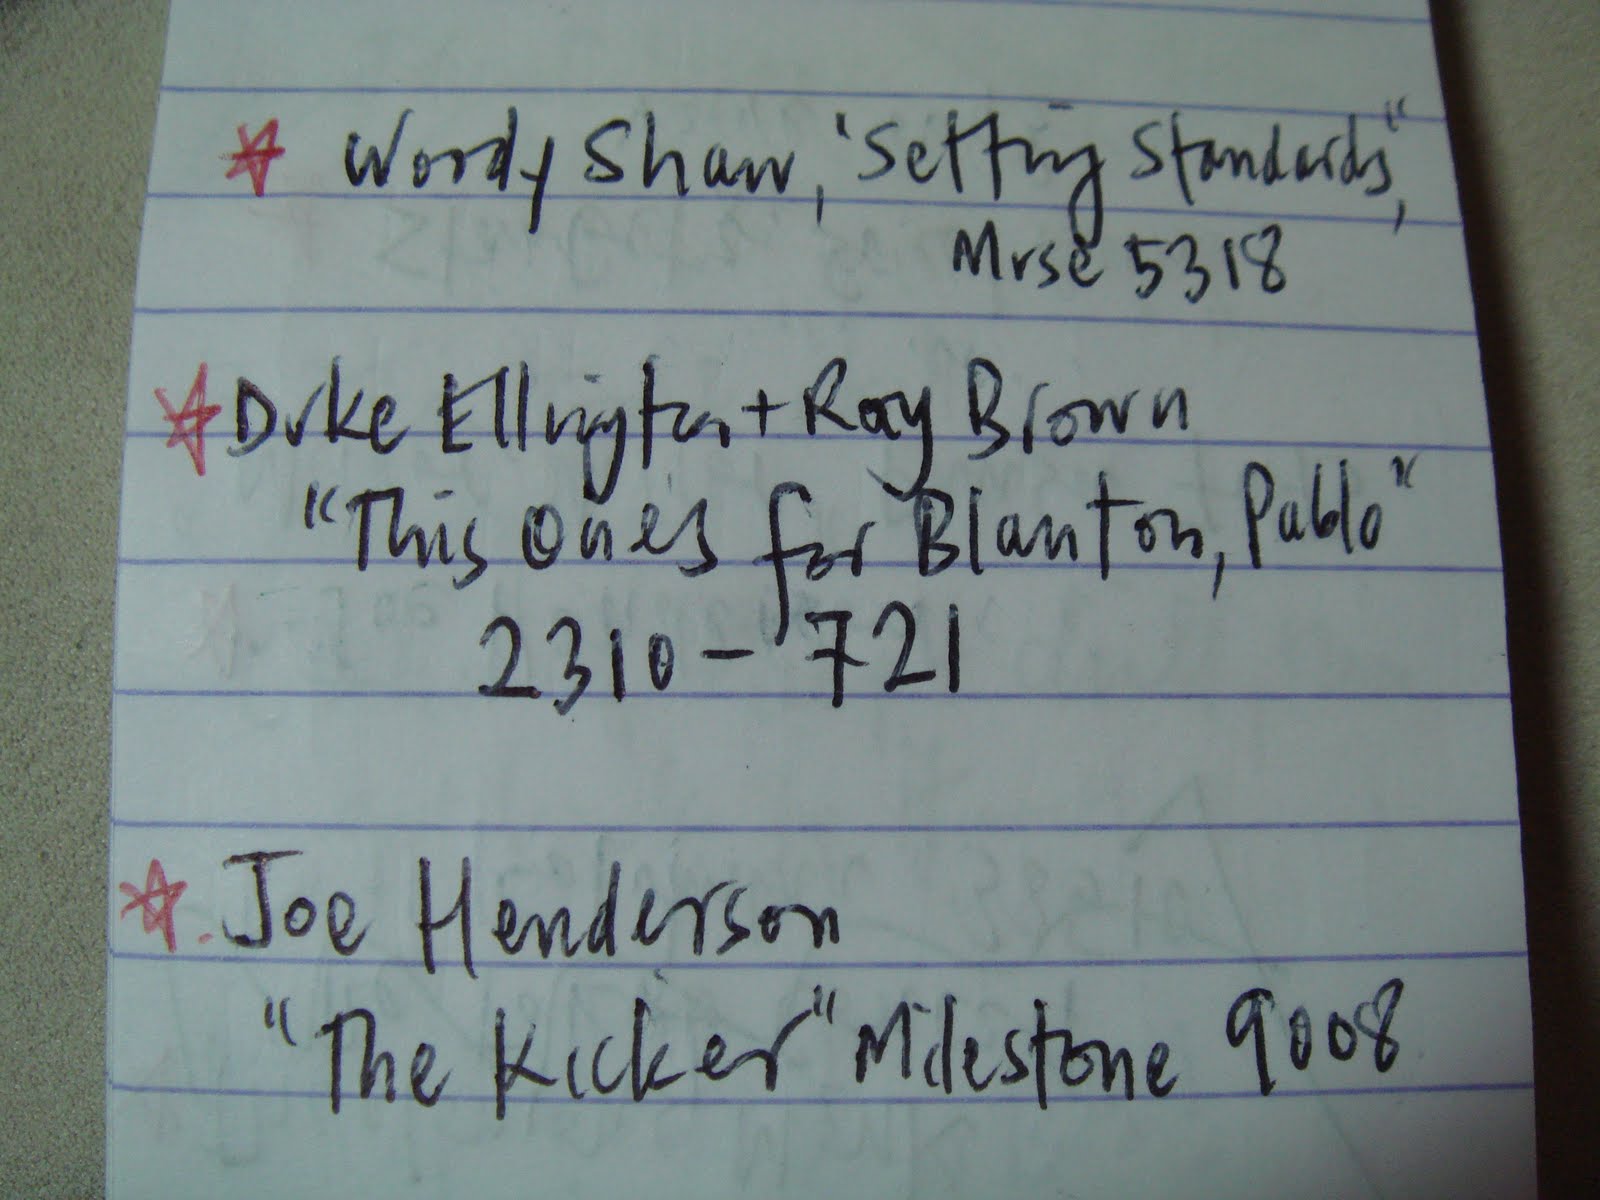 Woody Shaw, "Setting Standards",
Muse 5318
Duke Ellington + Ray Brown
"This One's for Blanton, Pablo"
2310-721
Joe Henderson
"The Kicker" Milestone 9008